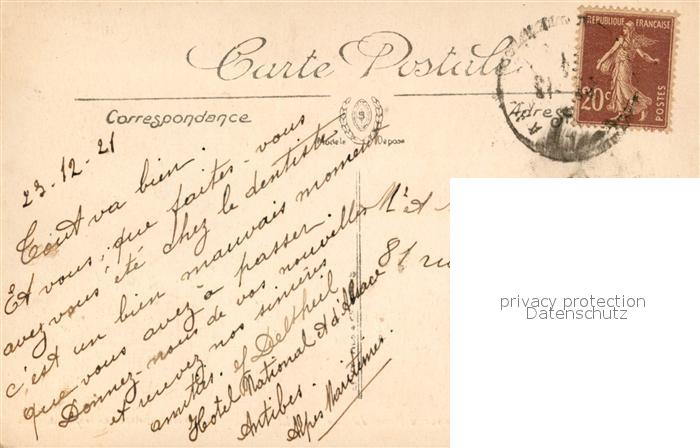 Carte Postale
Correspondance
Adresse
Modèle Déposé
REPUBLIQUE FRANÇAISE
20c
POSTES
23-12-21
Tout va bien.
Et vous, que faites-vous
avez vous été chez le dentiste
c'est un bien mauvais moment
que vous avez à passer.
Donnez-nous de vos nouvelles
et recevez nos sincères
amitiés. Deltheil
Hotel National et d'Alsace
Antibes.
Alpes Maritimes.
Mr et
81 ru
privacy protection
Datenschutz